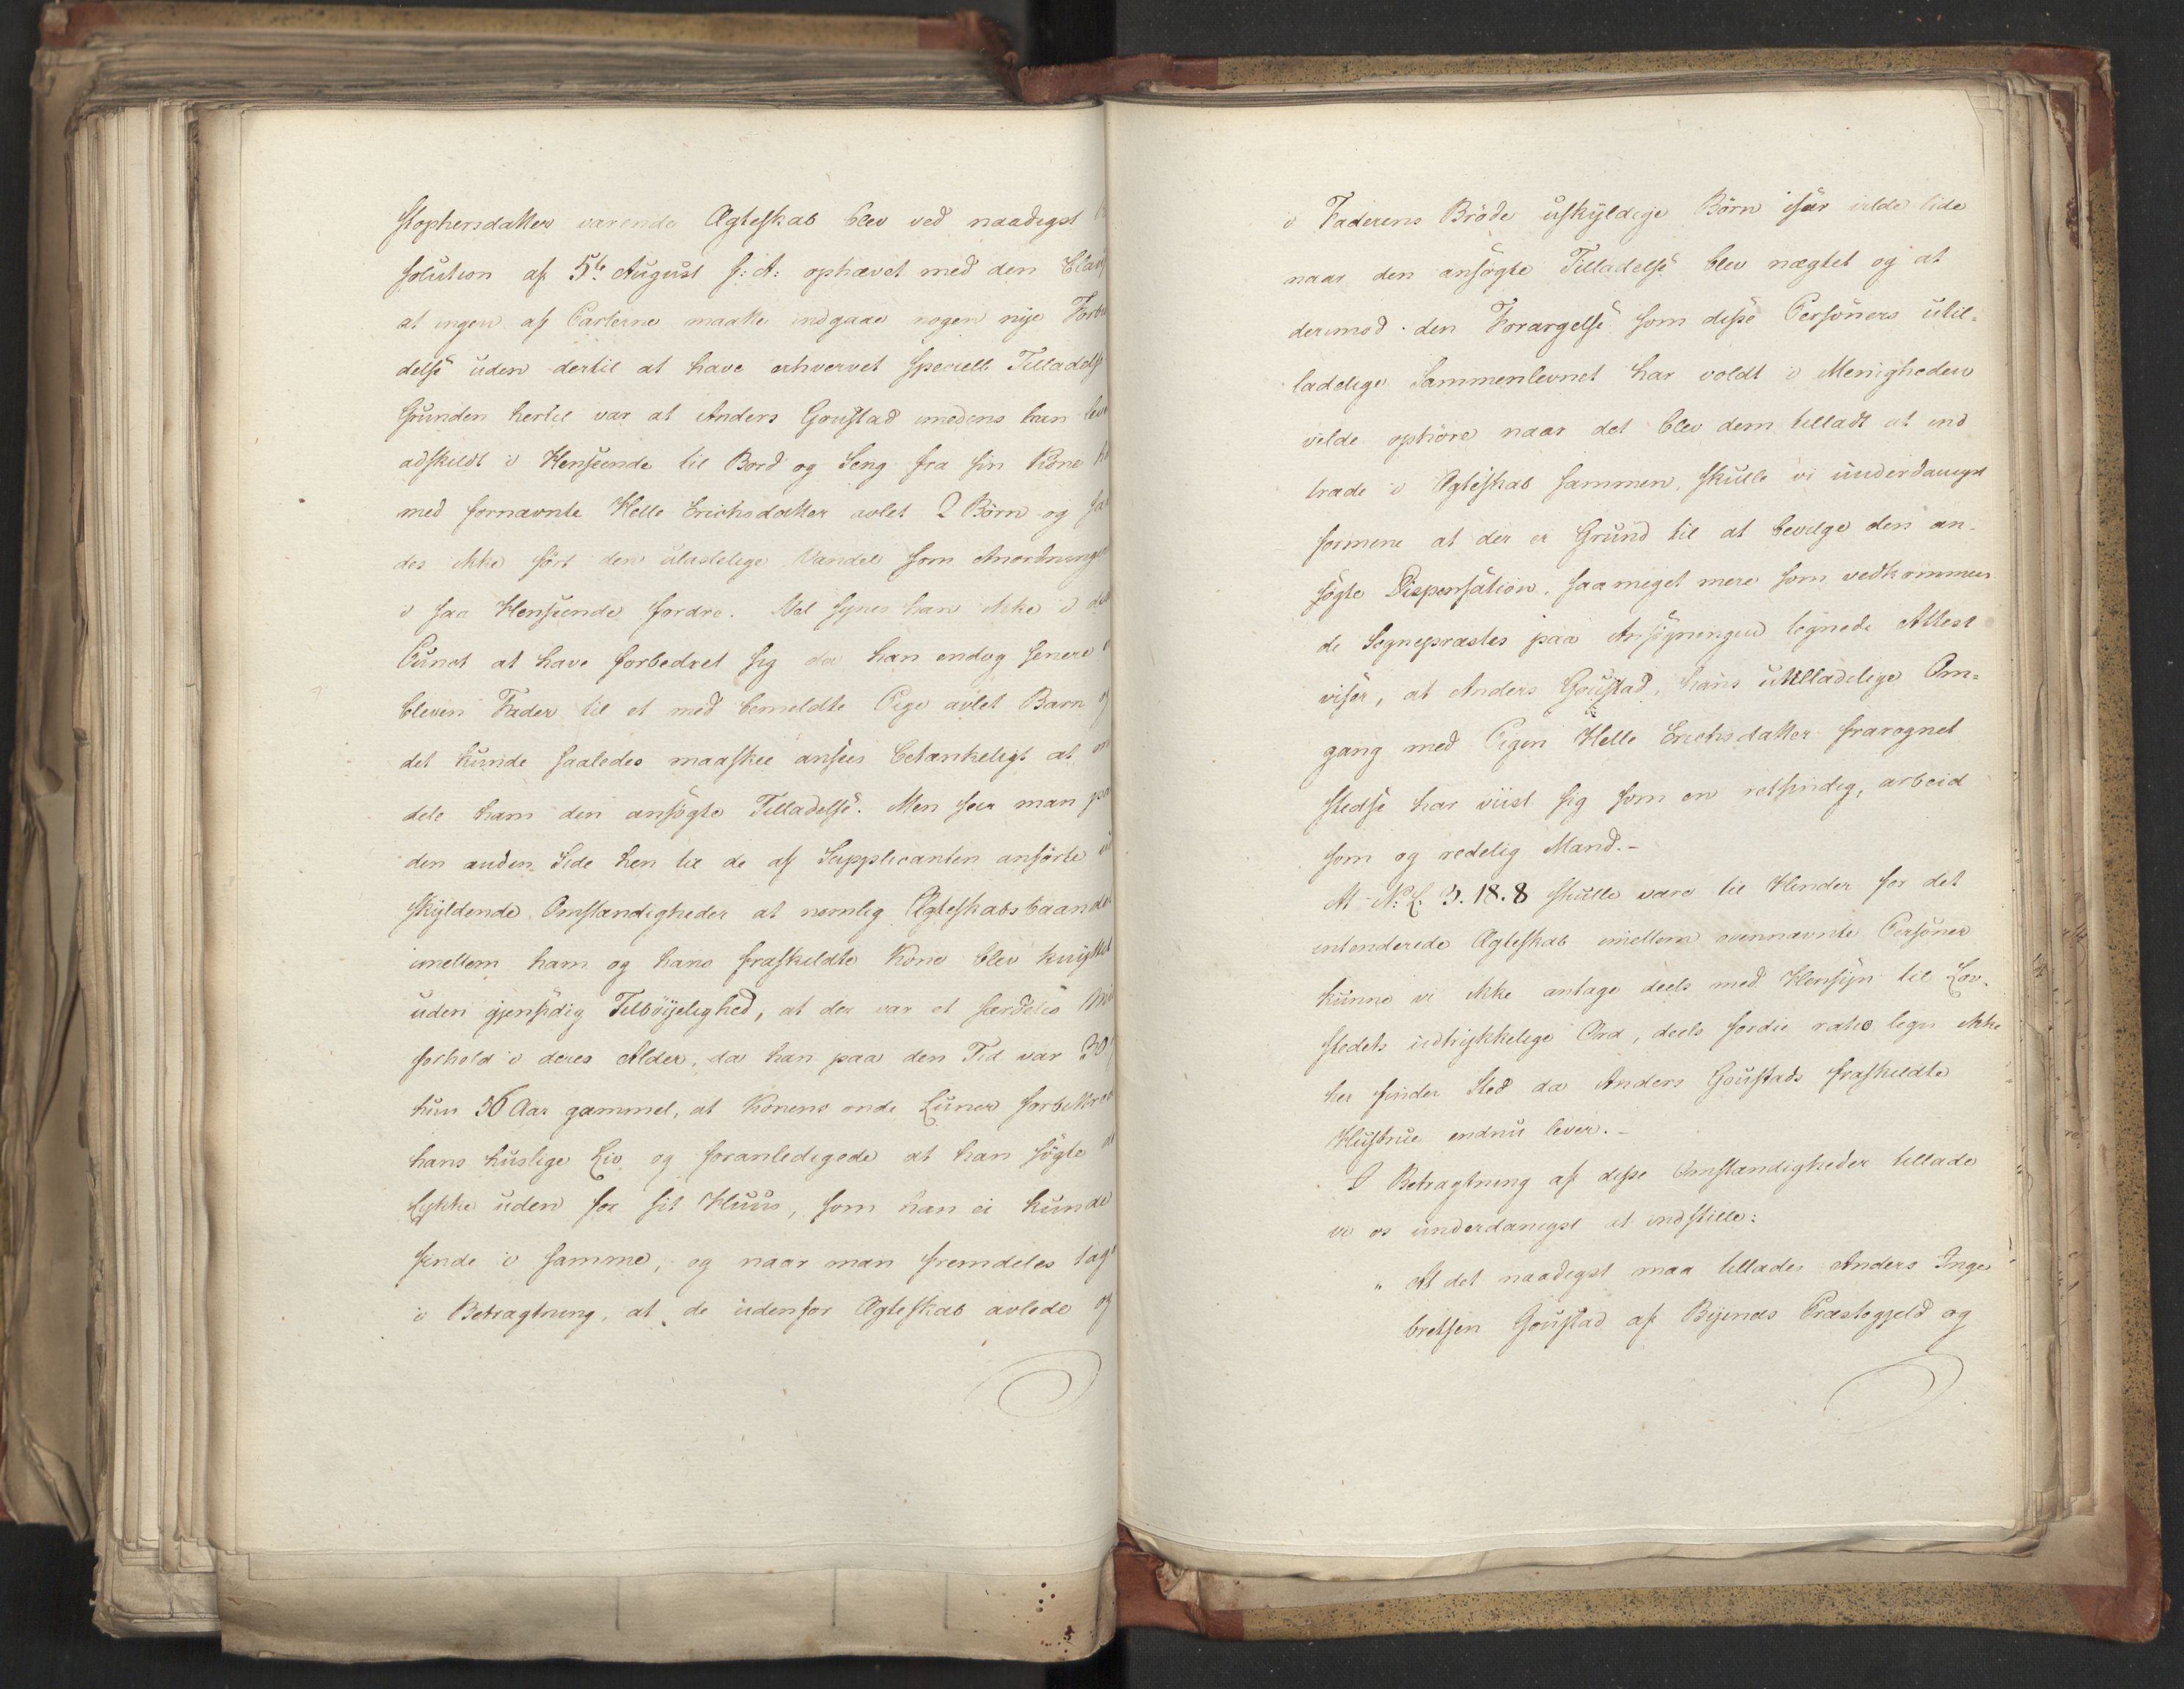 stophersdatter værende Ægteskab blev ved naadigst
solution af 5te August f: A: ophævet med den
at ingen af Parterne maatte indgaae nogen nye
delse uden dertil at have erhvervet speciell Tilladelse
Grunden hertil var at Anders Goustad imedens han
adskildt i Henseende til Bord og Seng fra sin Kone
med fornævnte Helle Erichsdatter avlet 2 Børn og
des ikke ført den ulastelige Vandel som Anordningen
i saa Henseende fordre. Vel synes han ikke i
Punct at have forbedret sig da han endog senere
bleven Fader til et med bemeldte Pige avlet Barn og
det kunde saaledes maaskee ansees betænkeligt at
dele ham den ansøgte Tilladelse. Men seer man
den anden Side hen til de af Supplicanten anførte
skyldende Omstændigheder at nemlig Ægteskabsbaandet
imellem ham og hans fraskildte Kone blev knyttet
uden gjensidig Tilbøyelighed, at der var et særdeles
forhold i deres Alder, da han paa den Tid var 30
hun 56 Aar gammel, at Konens onde Luner forbittrede
hans huslige Liv og foranledigede at han søgte
Lykke uden for sit Huus, som han ei kunde
finde i samme, og naar man fremdeles tager
i Betragtning, at de udenfor Ægteskab avlede og
i Faderens Brøde uskyldige Børn især vilde lide
naar den ansøgte Tilladelse blev nægtet og at
derimod den Forargelse som disse Personers util-
ladelige Sammenlevnet har voldt i Menigheden
vilde ophøre naar det blev dem tilladt at ind
træde i Ægteskab sammen, skulle vi underdanigst
formene at der er Grund til at bevilge den an-
søgte Dispensation, saameget mere som vedkommen
de Sognepræstes paa Ansøgningen tegnede Attest
viser, at Anders Goustad, hans utilladelige Om-
gang med Pigen Helle Erichsdatter fraregnet
stedse har viist sig som en retsindig, arbeid
som og redelig Mand.-
At N: L. 3. 18. 8 skulle være til Hinder for det
intenderede Ægteskab imellem ovennævnte Personer
kunne vi ikke antage deels med Hensyn til Lov-
stedets udtrykkelige Ord, deels fordie ratio legis ikke
her finder Sted da Anders Goustads fraskildte
Hustrue endnu lever.-
I Betragtning af disse Omstændigheder tillade
vi os underdanigst at indstille:
" At det naadigst maa tillades Anders Inge
bretsen Goustad af Byenæs Præstegjeld og